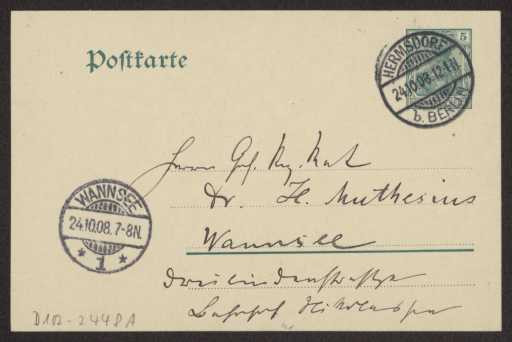 Postkarte
5
HERMSDORF
24.10.08. 12-1N.
b. BERLIN
Herrn Geh. Reg. Rat
Dr. H. Muthesius
Wannsee
Dreilindenstraße
Bahnhof Nikolassee
WANNSEE
24.10.08. 7-8N.
* 1 *
D102-2448A